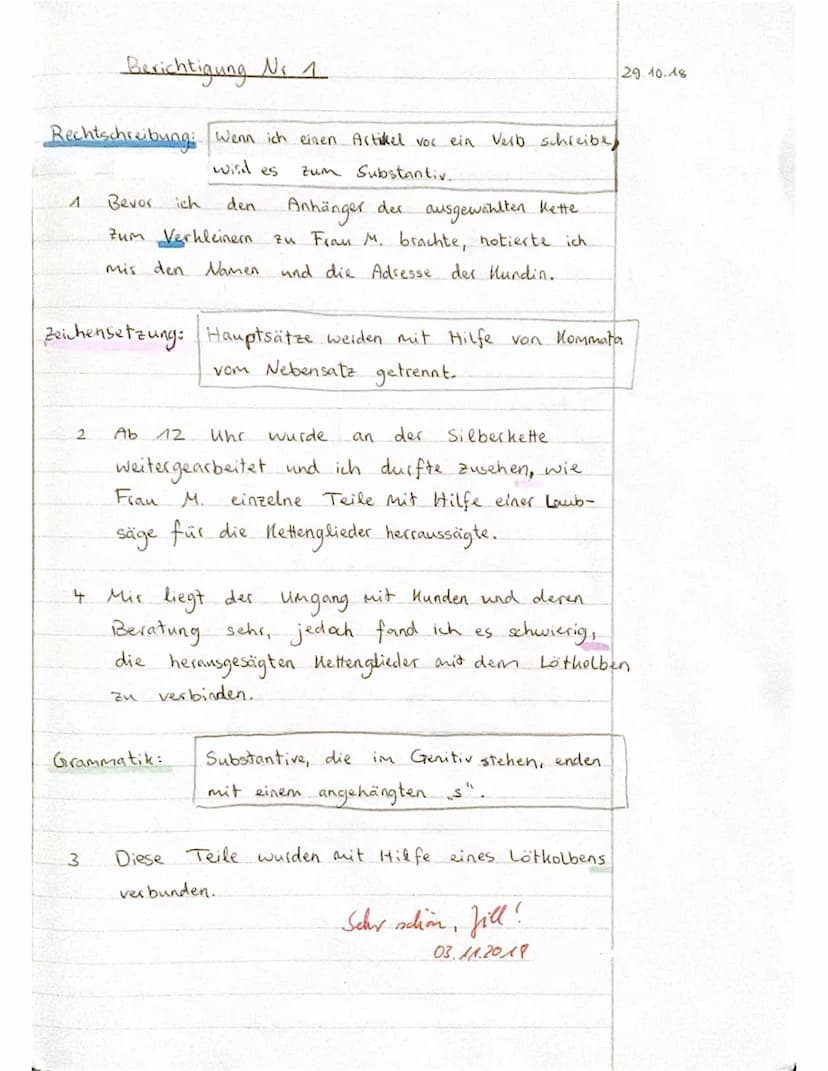 Berichtigung Nr 1
29.10.18
Rechtschreibung: Wenn ich einen Artikel vor ein Verb schreibe,
wird es zum Substantiv.
1 Bevor ich den Anhänger der ausgewählten Kette
zum Verkleinern zu Frau M. brachte, notierte ich
mir den Namen und die Adresse der Kundin.
Zeichensetzung: Hauptsätze werden mit Hilfe von Kommata
vom Nebensatz getrennt.
2 Ab 12 Uhr wurde an der Silberkette
weitergearbeitet und ich durfte zusehen, wie
Frau M. einzelne Teile mit Hilfe einer Laub-
säge für die Kettenglieder herraussägte.
4 Mir liegt der Umgang mit Kunden und deren
Beratung sehr, jedoch fand ich es schwierig,
die herausgesägten Kettenglieder mit dem Lötkolben
zu verbinden.
Grammatik: Substantive, die im Genitiv stehen, enden
mit einem angehängten „s".
3 Diese Teile wurden mit Hilfe eines Lötkolbens
verbunden.
Sehr schön, Jill!
03.11.2018